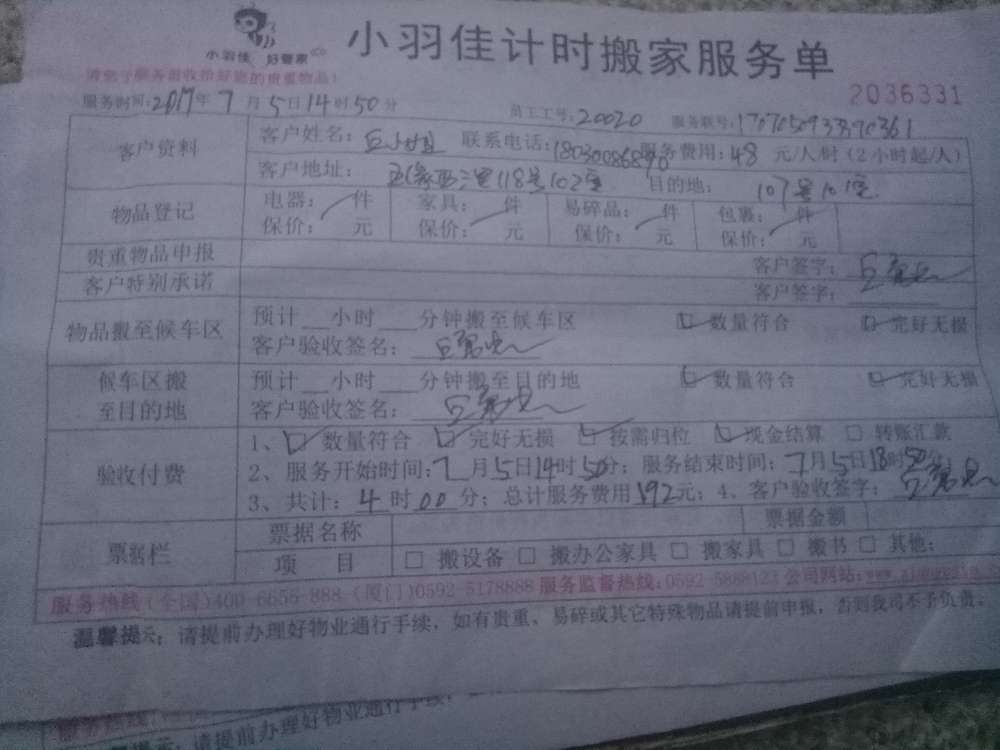 小羽佳 好管家
小羽佳计时搬家服务单
请您于服务前收拾好您的贵重物品!
2036331
服务时间:2017年7月5日14时50分 员工工号:20020 服务联号:
客户资料
客户姓名: 联系电话: 服务费用:48元/人/时(2小时起/人)
客户地址: 118号102室 目的地: 107号101室
物品登记
电器: 件 家具: 件 易碎品: 件 包裹: 件
保价: 元 保价: 元 保价: 元 保价: 元
贵重物品申报 客户签字:
客户特别承诺 客户签字:
物品搬至候车区
预计__小时___分钟搬至候车区 数量符合 完好无损
客户验收签名:
候车区搬至目的地
预计__小时___分钟搬至目的地 数量符合 完好无损
客户验收签名:
验收付费
1、数量符合 完好无损 按需归位 现金结算 转账汇款
2、服务开始时间:7月5日14时50分;服务结束时间:7月5日18时50分
3、共计:4时00分;总计服务费用192元;4、客户验收签字:
票据栏
票据名称 票据金额
项 目 □ 搬设备 □ 搬办公家具 □ 搬家具 □ 搬书 □ 其他:
服务热线(全国)400-6655-888 (厦门)0592-5178888 服务监督热线:0592-5888123 公司网站:
温馨提示:请提前办理好物业通行手续,如有贵重、易碎或其它特殊物品请提前申报,否则我司不予负责。
服务热线(全国)
温馨提示:请提前办理好物业通行手续,